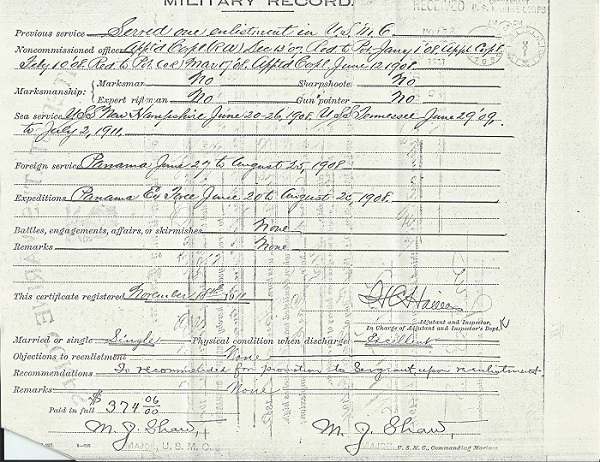 MILITARY RECORD.
RECEIVED
Previous service Served one enlistment in U.S.M.C.
Noncommissioned officer App'td Corpl (R.W.) Dec 13 '07. Red to Pvt Jany 1 '08. App'td Corpl.
Feby 10 '08. Red to Pvt (C.R.) Mar 17 '08. App'td Corpl June 12, 1908.
Marksmanship: Marksman No Sharpshooter No
Expert rifleman No Gun pointer No
Sea service USS New Hampshire June 20-26, 1908. USS Tennessee June 29 '09,
to July 2, 1911.
Foreign service Panama June 27 to August 25, 1908
Expeditions Panama Ex Force June 20 to August 25, 1908.
Battles, engagements, affairs, or skirmishes None
Remarks None
This certificate registered November 1911
Adjutant and Inspector,
In Charge of Adjutant and Inspector's Dept.
Married or single Single Physical condition when discharged Excellent
Objections to reenlistment None
Recommendations Is recommended for promotion to Sergeant upon reenlistment.
Remarks None
Paid in full $374 06/00
M. J. Shaw, M. J. Shaw,
MAJOR, U. S. M. C. MAJOR U. S. M. C., Commanding Marines